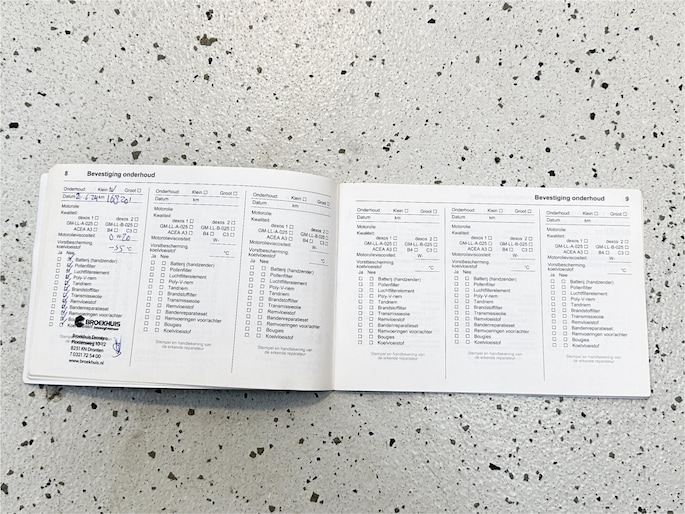 8 Bevestiging onderhoud
Onderhoud: Klein ☑ Groot ☐
Datum km 169201
Motorolie
Kwaliteit:
dexos 1 ☐ dexos 2 ☐
GM-LL-A-025 ☐ GM-LL-B-025 ☐
ACEA A3 ☐ B4 ☐ C3 ☐
Motorolieviscositeit: 0 W-20
Vorstbescherming,
koelvloeistof -35 °C
Ja Nee
Batterij (handzender)
Pollenfilter
Luchtfilterelement
Poly-V-riem
Tandriem
Brandstoffilter
Transmissieolie
Remvloeistof
Bandenreparatieset
Remvoeringen voor/achter
BROEKHUIS
Broekhuis Dronten
8251 KN Dronten
T 0321 72 54 00
www.broekhuis.nl
Onderhoud: Klein ☐ Groot ☐
Datum km
Motorolie
Kwaliteit:
dexos 1 ☐ dexos 2 ☐
GM-LL-A-025 ☐ GM-LL-B-025 ☐
ACEA A3 ☐ B4 ☐ C3 ☐
Motorolieviscositeit: W-
Vorstbescherming,
koelvloeistof °C
Ja Nee
☐ ☐ Batterij (handzender)
☐ ☐ Pollenfilter
☐ ☐ Luchtfilterelement
☐ ☐ Poly-V-riem
☐ ☐ Tandriem
☐ ☐ Brandstoffilter
☐ ☐ Transmissieolie
☐ ☐ Remvloeistof
☐ ☐ Bandenreparatieset
☐ ☐ Remvoeringen voor/achter
☐ ☐ Bougies
☐ ☐ Koelvloeistof
Stempel en handtekening van
de erkende reparateur
Onderhoud: Klein ☐ Groot ☐
Datum km
Motorolie
Kwaliteit:
dexos 1 ☐ dexos 2 ☐
GM-LL-A-025 ☐ GM-LL-B-025 ☐
ACEA A3 ☐ B4 ☐ C3 ☐
Motorolieviscositeit: W-
Vorstbescherming,
koelvloeistof °C
Ja Nee
☐ ☐ Batterij (handzender)
☐ ☐ Pollenfilter
☐ ☐ Luchtfilterelement
☐ ☐ Poly-V-riem
☐ ☐ Tandriem
☐ ☐ Brandstoffilter
☐ ☐ Transmissieolie
☐ ☐ Remvloeistof
☐ ☐ Bandenreparatieset
☐ ☐ Remvoeringen voor/achter
☐ ☐ Bougies
☐ ☐ Koelvloeistof
Stempel en handtekening van
de erkende reparateur
Bevestiging onderhoud 9
Onderhoud: Klein ☐ Groot ☐
Datum km
Motorolie
Kwaliteit:
dexos 1 ☐ dexos 2 ☐
GM-LL-A-025 ☐ GM-LL-B-025 ☐
ACEA A3 ☐ B4 ☐ C3 ☐
Motorolieviscositeit: W-
Vorstbescherming,
koelvloeistof °C
Ja Nee
☐ ☐ Batterij (handzender)
☐ ☐ Pollenfilter
☐ ☐ Luchtfilterelement
☐ ☐ Poly-V-riem
☐ ☐ Tandriem
☐ ☐ Brandstoffilter
☐ ☐ Transmissieolie
☐ ☐ Remvloeistof
☐ ☐ Bandenreparatieset
☐ ☐ Remvoeringen voor/achter
☐ ☐ Bougies
☐ ☐ Koelvloeistof
Stempel en handtekening van
de erkende reparateur
Onderhoud: Klein ☐ Groot ☐
Datum km
Motorolie
Kwaliteit:
dexos 1 ☐ dexos 2 ☐
GM-LL-A-025 ☐ GM-LL-B-025 ☐
ACEA A3 ☐ B4 ☐ C3 ☐
Motorolieviscositeit: W-
Vorstbescherming,
koelvloeistof °C
Ja Nee
☐ ☐ Batterij (handzender)
☐ ☐ Pollenfilter
☐ ☐ Luchtfilterelement
☐ ☐ Poly-V-riem
☐ ☐ Tandriem
☐ ☐ Brandstoffilter
☐ ☐ Transmissieolie
☐ ☐ Remvloeistof
☐ ☐ Bandenreparatieset
☐ ☐ Remvoeringen voor/achter
☐ ☐ Bougies
☐ ☐ Koelvloeistof
Stempel en handtekening van
de erkende reparateur
Onderhoud: Klein ☐ Groot ☐
Datum km
Motorolie
Kwaliteit:
dexos 1 ☐ dexos 2 ☐
GM-LL-A-025 ☐ GM-LL-B-025 ☐
ACEA A3 ☐ B4 ☐ C3 ☐
Motorolieviscositeit: W-
Vorstbescherming,
koelvloeistof °C
Ja Nee
☐ ☐ Batterij (handzender)
☐ ☐ Pollenfilter
☐ ☐ Luchtfilterelement
☐ ☐ Poly-V-riem
☐ ☐ Tandriem
☐ ☐ Brandstoffilter
☐ ☐ Transmissieolie
☐ ☐ Remvloeistof
☐ ☐ Bandenreparatieset
☐ ☐ Remvoeringen voor/achter
☐ ☐ Bougies
☐ ☐ Koelvloeistof
Stempel en handtekening van
de erkende reparateur